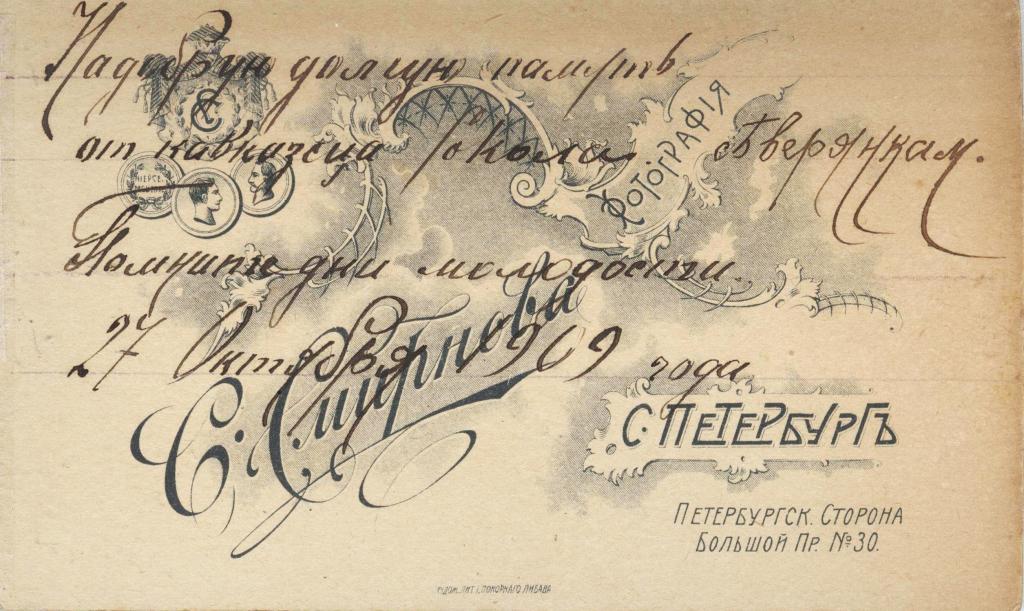 На долгую память
от кавказца Аверянкам.
Помните дни молодости.
27 Октября 1909 года
ФОТОГРАФІЯ
С. Смирнова
С. ПЕТЕРБУРГЪ
ПЕТЕРБУРГСК. СТОРОНА
БОЛЬШОЙ ПР. №30.